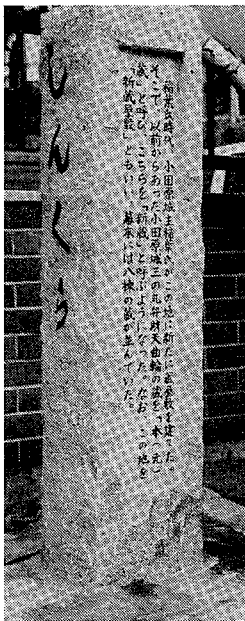 しんくら
稲葉氏時代、小田原城主稲葉氏がこの地に新たに蔵数棟を建てた。
そこで、以前からあった小田原城三の丸弁財天曲輪の蔵を「本(元)
蔵」と呼び、こちらを「新蔵」と呼ぶようになった。なお、この地を
「新蔵屋敷」ともいい、幕末には八棟の蔵が並んでいた。